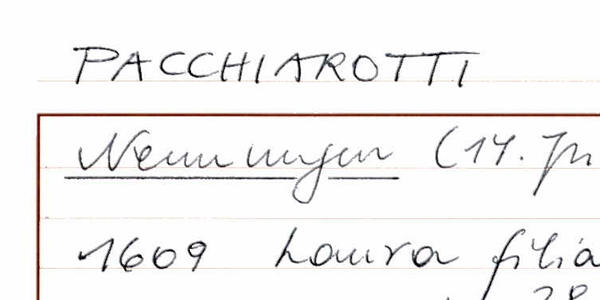 PACCHIAROTTI
Nennungen (14. Jh
1609 Laura filia
28